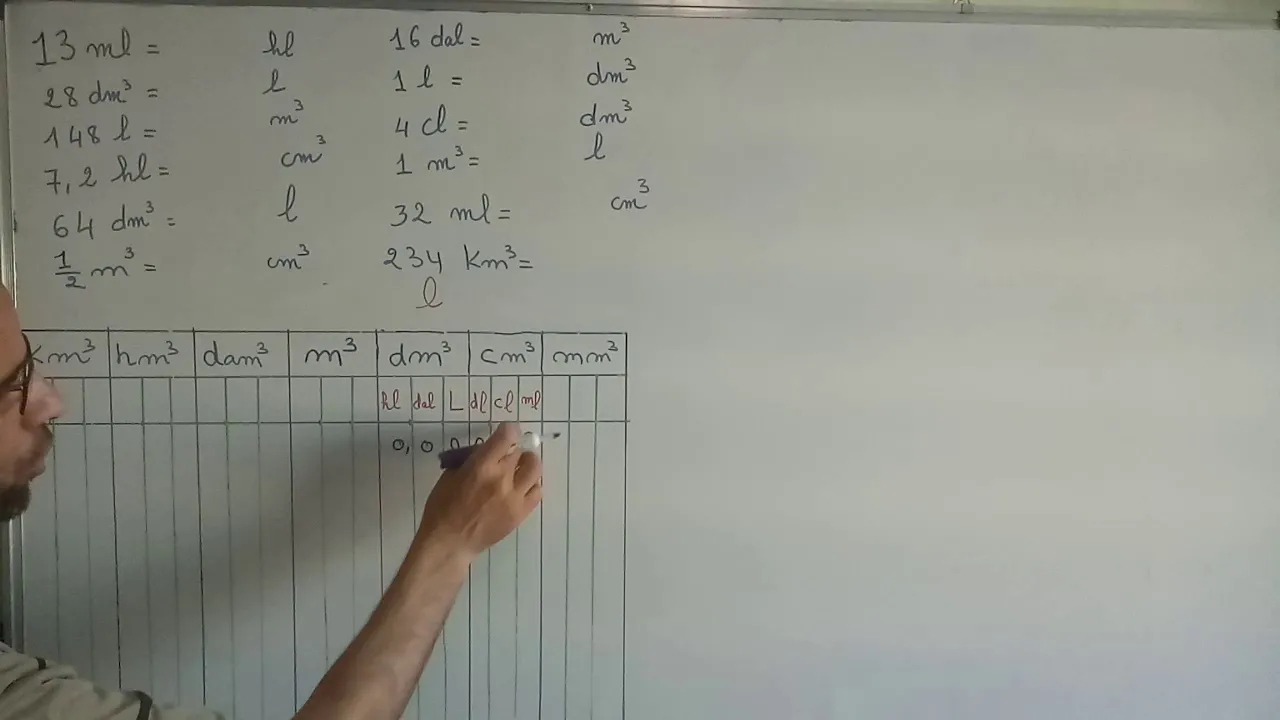 13 ml = hl
28 dm³ = l
148 l = m³
7,2 hl = cm³
64 dm³ = l
1/2 m³ = cm³
16 dal = m³
1 l = dm³
4 cl = dm³
1 m³ = l
32 ml = cm³
234 km³ =
l
km³ hm³ dam³ m³ dm³ cm³ mm³
hl dal L dl cl ml
0,0 0